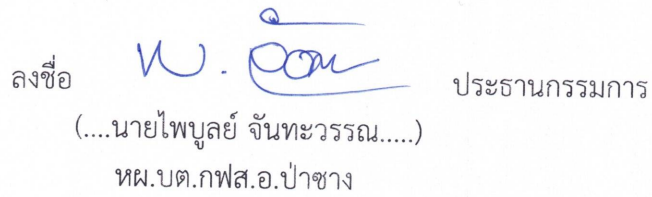 ลงชื่อ พ. ประธานกรรมการ
(....นายไพบูลย์ จันทะวรรณ.....)
หผ.บต.กฟส.อ.ป่าซาง